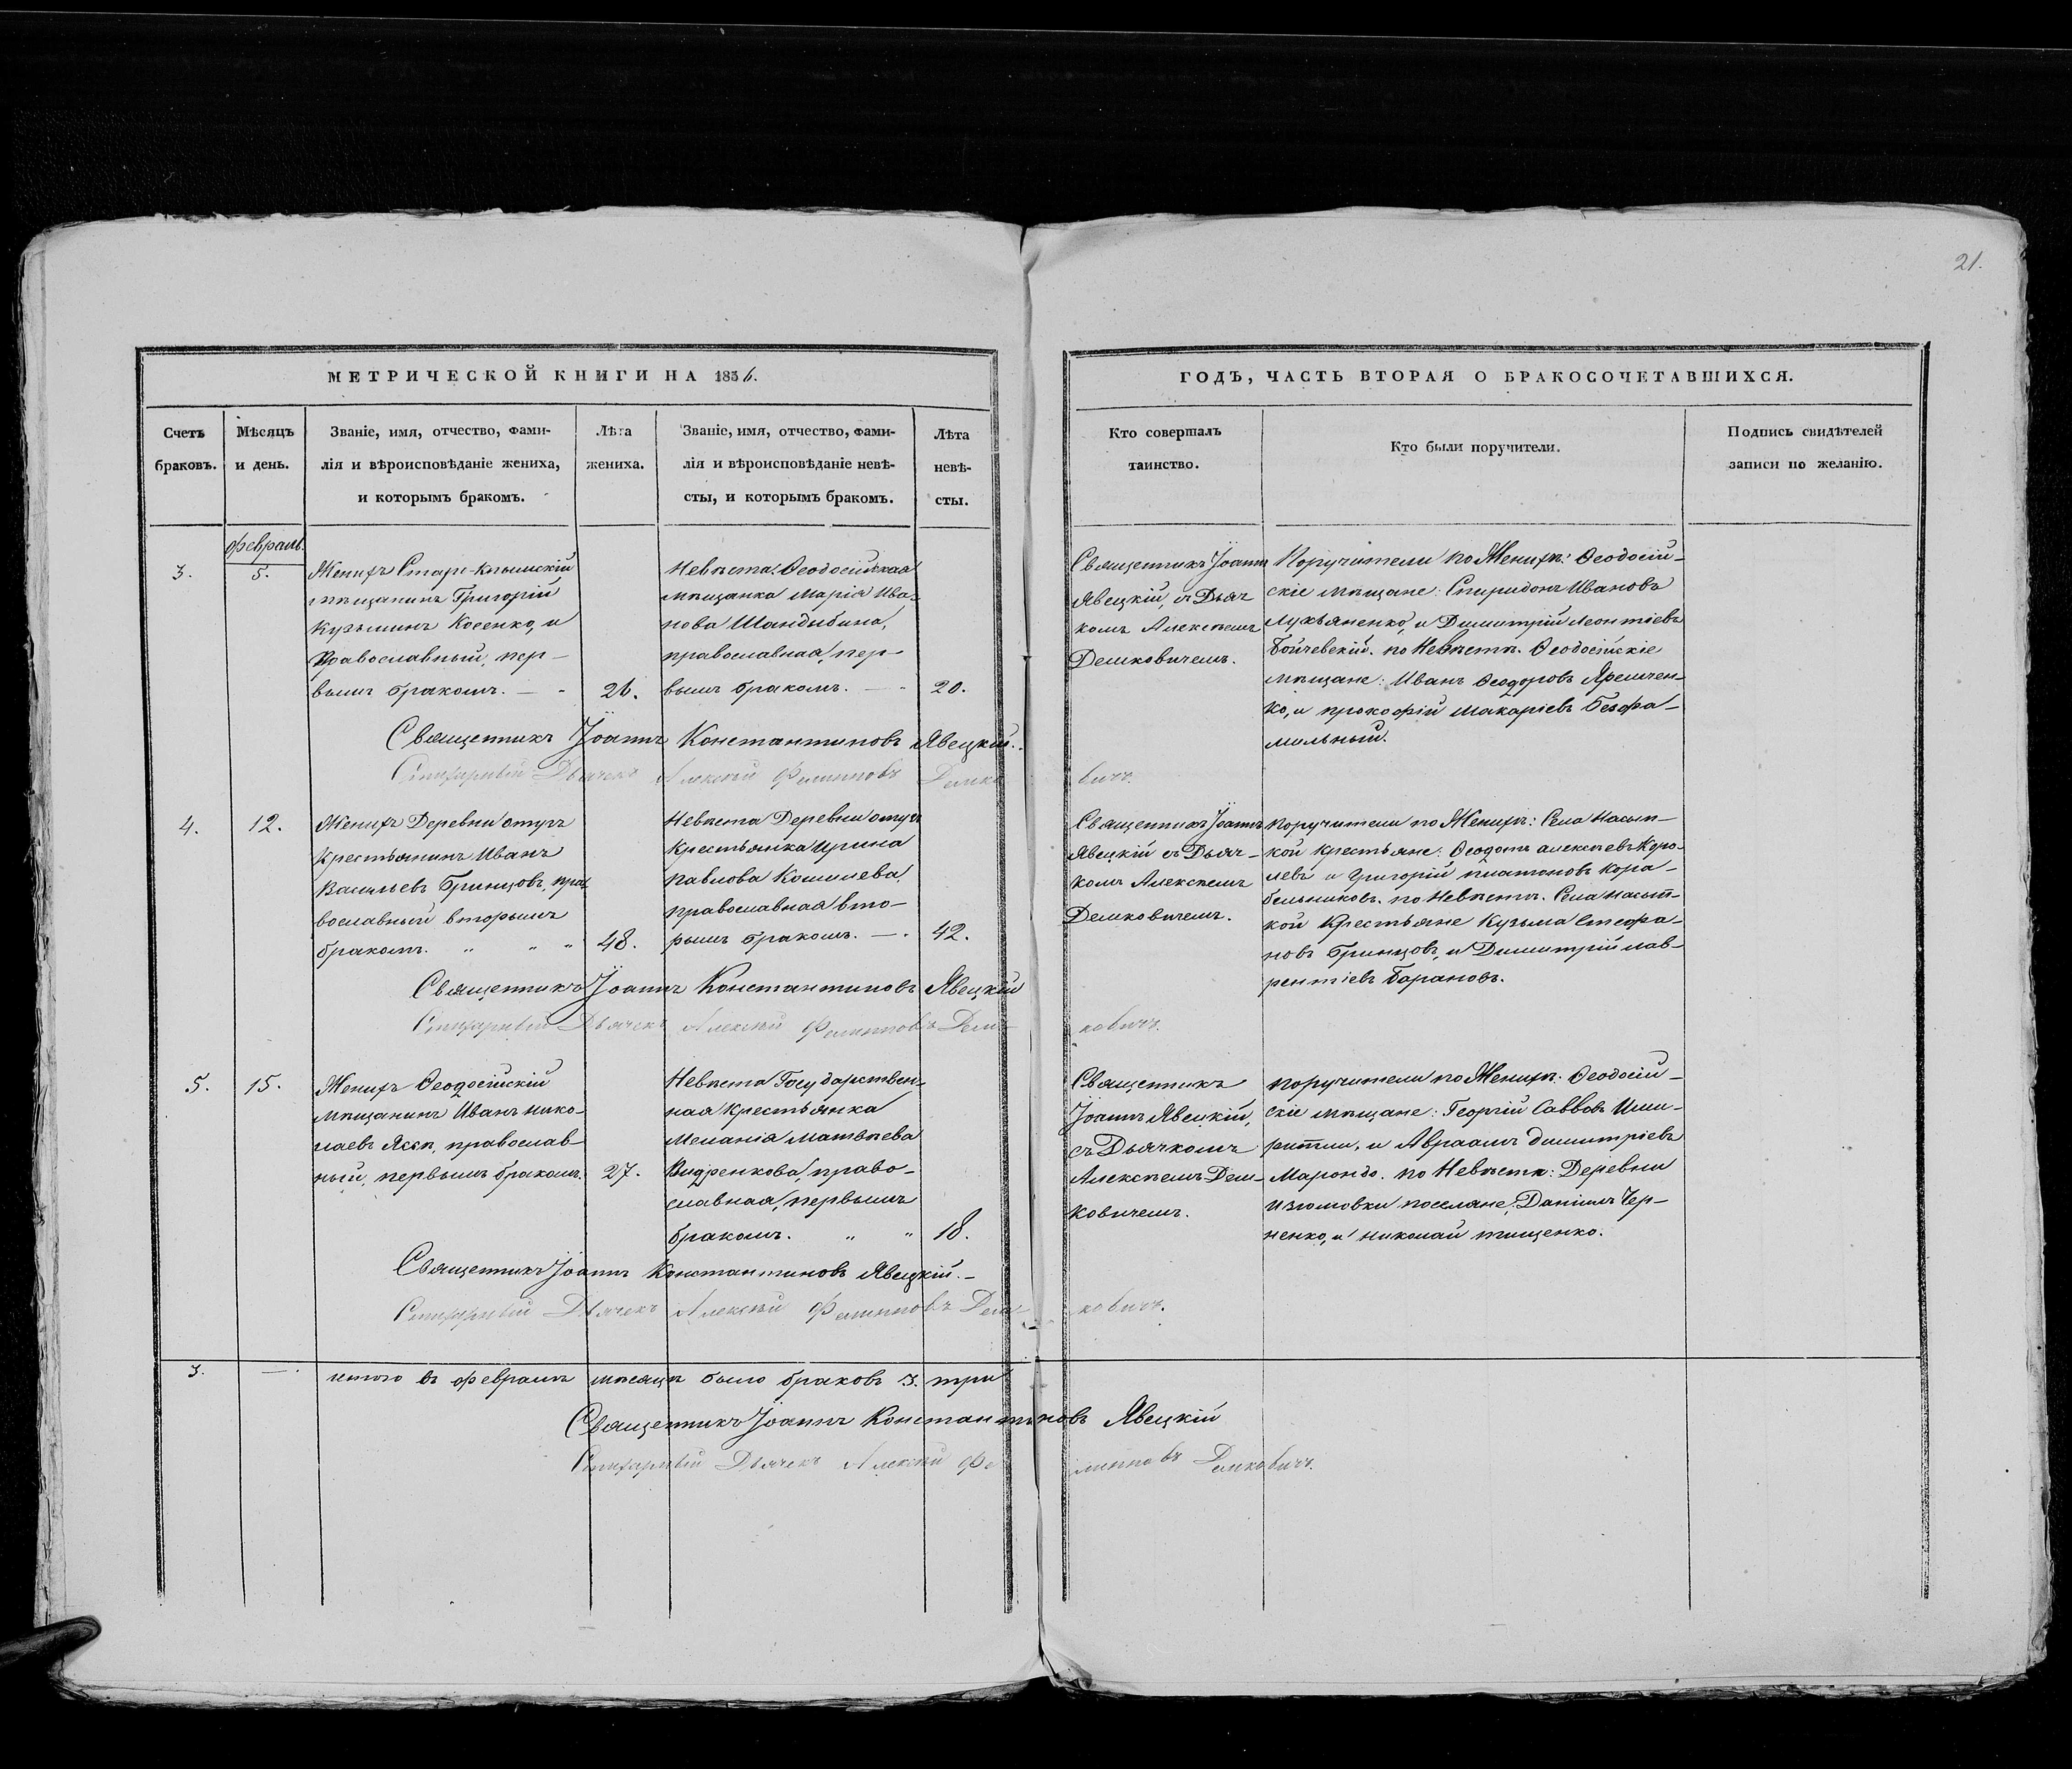 21.
МЕТРИЧЕСКОЙ КНИГИ НА 1856.
Счетъ
браковъ.
Мѣсяцъ
и день.
Званіе, имя, отчество, фами-
лія и вѣроисповѣданіе жениха,
и которымъ бракомъ.
Лѣта
жениха.
Званіе, имя, отчество, фами-
лія и вѣроисповѣданіе невѣ-
сты, и которымъ бракомъ.
Лѣта
невѣ-
сты.
ГОДЪ, ЧАСТЬ ВТОРАЯ О БРАКОСОЧЕТАВШИХСЯ.
Кто совершалъ
таинство.
Кто были поручители.
Подпись свидѣтелей
записи по желанію.
февраль.
3.
5.
Женихъ Старо-Крымскій
мѣщанинъ Григорій
Кузьминъ Косенко, и
Православный, пер-
вымъ бракомъ. —
26.
Невѣста: Ѳеодосійская
мѣщанка Марія Ива-
нова Шандыбина,
православная, пер-
вымъ бракомъ. —
20.
Священникъ Іоаннъ
Явецкій, съ Дьяч
комъ Алексѣемъ
Демковичемъ.
Поручители по Женихѣ: Ѳеодосій-
скіе мѣщане: Спиридонъ Ивановъ
Лукьяненко, и Димитрій Леонтіевъ
Бойчевскій. по Невѣстѣ. Ѳеодосійскіе
мѣщане: Иванъ Ѳеодоровъ Яремчен-
ко, и прокофій Макаріевъ Безфа-
мильный.
Священникъ Іоаннъ Константиновъ Явецкій.
Стихарный Дьячекъ Алексѣй Филиповъ Демковичъ.
4.
12.
Женихъ Деревни отузъ
Крестьянинъ Иванъ
Васильевъ Бринцовъ, пра
вославный вторымъ
бракомъ. " " "
48.
Невѣста Деревни отузъ
Крестьянка Ирина
Павлова Кошелева,
православная вто-
рымъ бракомъ. —
42.
Священникъ Іоаннъ
Явецкій съ Дьяч-
комъ Алексѣемъ
Демковичемъ.
поручители по Женихѣ: Села Насып-
кой крестьяне: Ѳеодотъ алексѣевъ Коро-
левъ и Григорій платоновъ Кора-
бельниковъ. по Невѣстѣ. Села насып-
кой Крестьяне Кузьма Стефа-
новъ Бринцовъ, и Димитрій лав-
рентіевъ Барановъ.
Священникъ Іоаннъ Константиновъ Явецкій
Стихарный Дьячекъ Алексѣй Филиповъ Дем-
ковичъ.
5.
15.
Женихъ Ѳеодосійскій
мѣщанинъ Иванъ нико-
лаевъ православ
ный, первымъ бракомъ.
27.
Невѣста Государствен-
ная крестьянка
Меланія Матвѣева
Видренкова, право-
славная, первымъ
бракомъ. " "
18.
Священникъ
Іоаннъ Явецкій,
съ Дьячкомъ
Алексѣемъ Дем-
ковичемъ.
поручители по Женихѣ: Ѳеодосій-
скіе мѣщане: Георгій Саввовъ
и Авраамъ димитріевъ
Марондо. по Невѣстѣ: Деревни
Изюмовки поселяне: Даніилъ Чер-
ненко, и николай тищенко.
Священникъ Іоаннъ Константиновъ Явецкій. —
Стихарный Дьячекъ Алексѣй Филиповъ Дем-
ковичъ.
3.
—
итого въ февралѣ мѣсяцѣ было браковъ 3. три
Священникъ Іоаннъ Константиновъ Явецкій
Стихарный Дьячекъ Алексѣй Филиповъ Демковичъ.